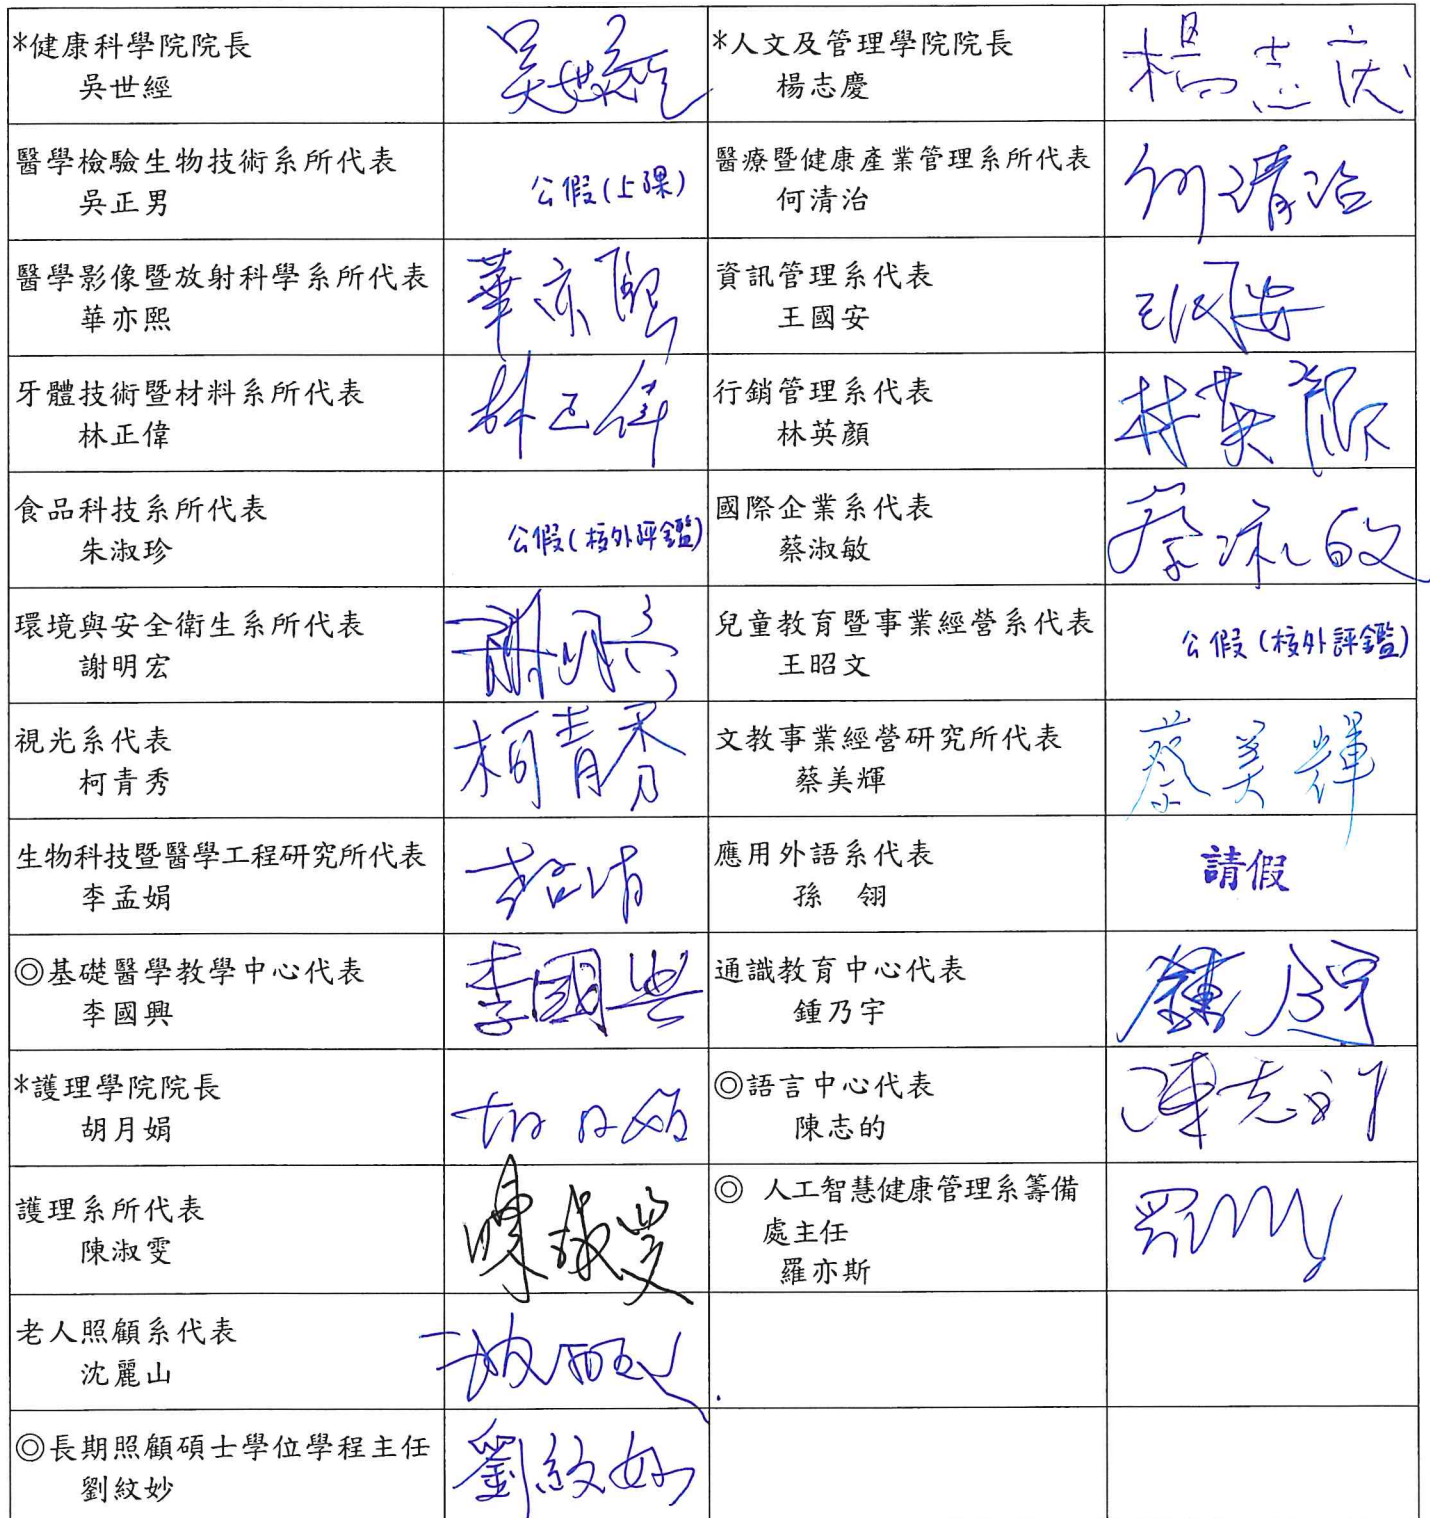 *健康科學院院長
吳世經
吳世經
*人文及管理學院院長
楊志慶
楊志慶
醫學檢驗生物技術系所代表
吳正男
公假(上課)
醫療暨健康產業管理系所代表
何清治
何清治
醫學影像暨放射科學系所代表
華亦熙
華亦熙
資訊管理系代表
王國安
王國安
牙體技術暨材料系所代表
林正偉
林正偉
行銷管理系代表
林英顏
林英顏
食品科技系所代表
朱淑珍
公假(校外評鑑)
國際企業系代表
蔡淑敏
蔡淑敏
環境與安全衛生系所代表
謝明宏
謝明宏
兒童教育暨事業經營系代表
王昭文
公假(校外評鑑)
視光系代表
柯青秀
柯青秀
文教事業經營研究所代表
蔡美輝
蔡美輝
生物科技暨醫學工程研究所代表
李孟娟
應用外語系代表
孫 翎
請假
◎基礎醫學教學中心代表
李國興
李國興
通識教育中心代表
鍾乃宇
鍾乃宇
*護理學院院長
胡月娟
胡月娟
◎語言中心代表
陳志的
陳志的
護理系所代表
陳淑雯
陳淑雯
◎ 人工智慧健康管理系籌備
處主任
羅亦斯
老人照顧系代表
沈麗山
◎長期照顧碩士學位學程主任
劉紋妙
劉紋妙